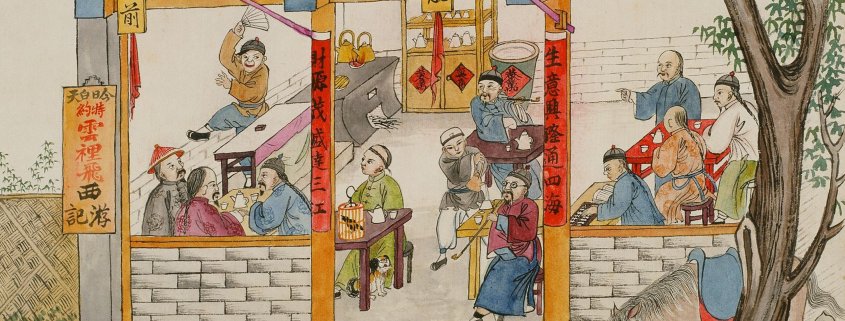 前
今日白天
特約
雲裡飛
西游記
生意興隆通四海
財源茂盛達三江